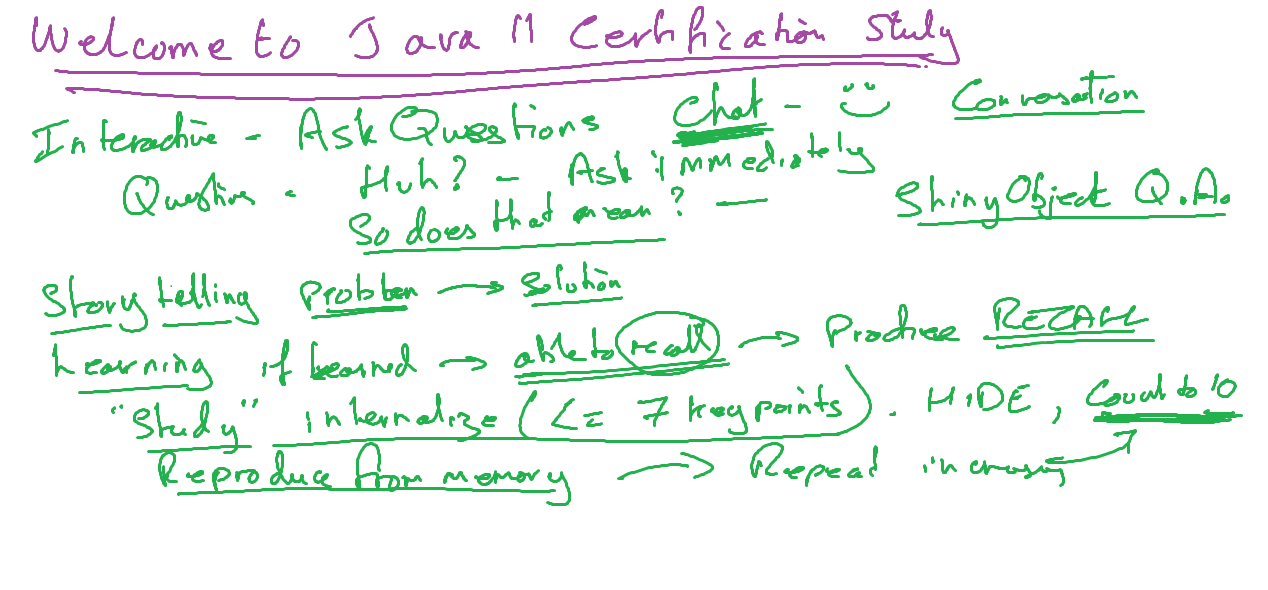 Welcome to Java 11 Certification Study
Interactive - Ask Questions Chat - Conversation
Question - Huh? - Ask immediately
So does that mean? — Shiny Object Q.A.
Storytelling Problem → Solution
Learning if learned → able to recall → Practice RECALL
"Study" internalize (<= 7 key points). HIDE, Count to 10
Reproduce from memory → Repeat increasing